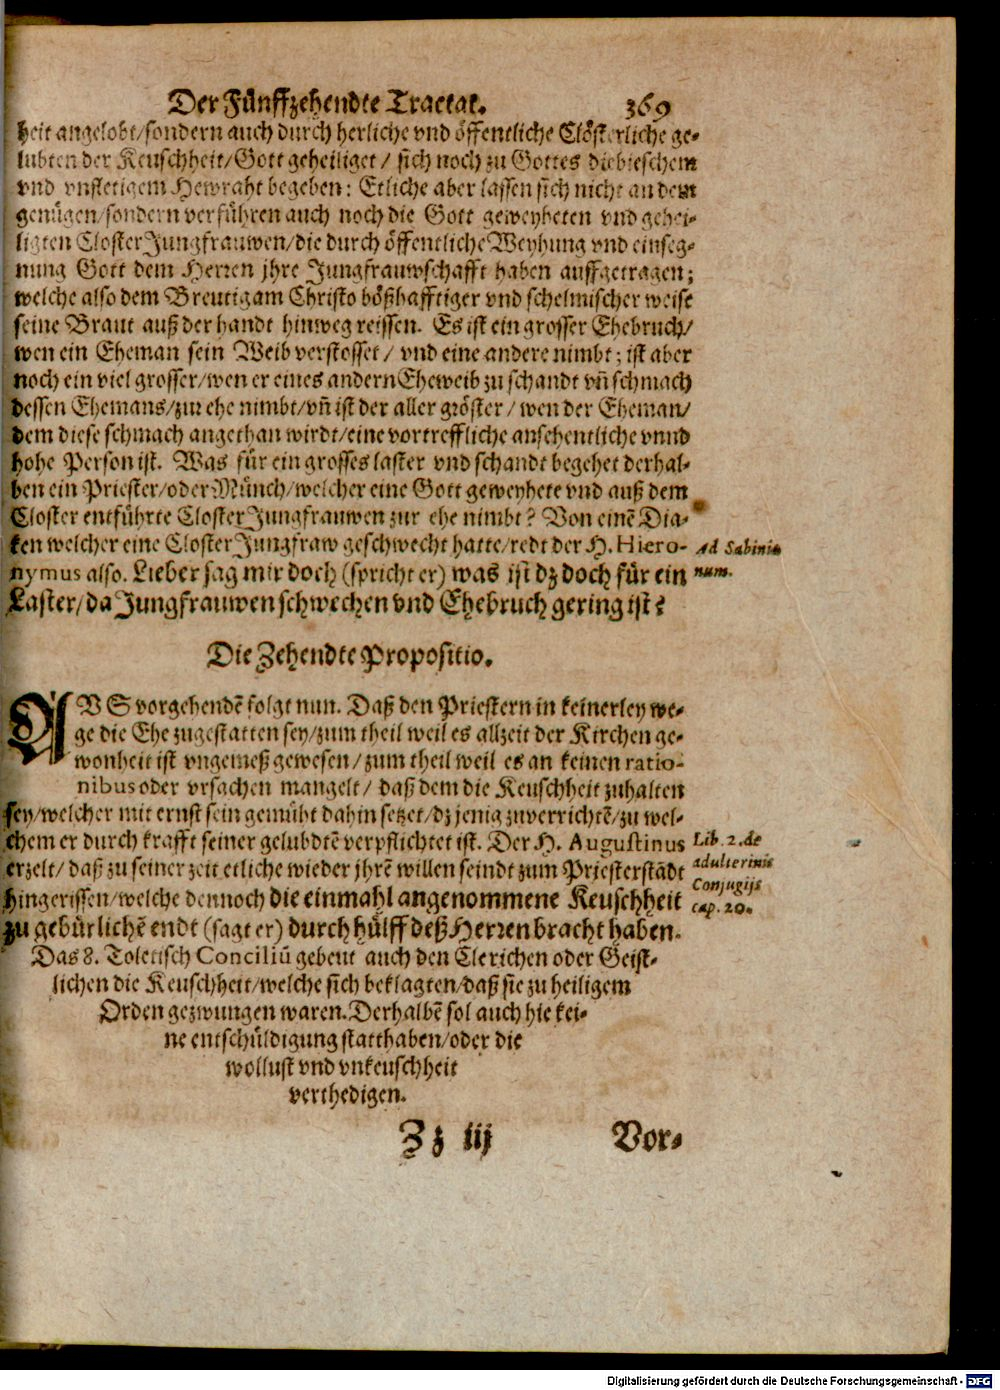 Der Fünffzehendte Tractat. 369
heit angelobt/sondern auch durch herliche vnd öffentliche Clösterliche ge-
lübten der Keuschheit/Gott geheiliget/ sich noch zu Gottes diebieschem
vnd vnfletigem Hewraht begeben: Etliche aber lassen sich nicht an dem
genügen/sondern verführen auch noch die Gott geweyheten vnd gehei-
ligten Closter Jungfrauwen/die durch öffentliche Weyhung vnd einseg-
nung Gott dem Herren jhre Jungfrauwschafft haben auffgetragen;
welche also dem Breutigam Christo bößhafftiger vnd schelmischer weise
seine Braut auß der handt hinweg reissen. Es ist ein grosser Ehebruch/
wen ein Eheman sein Weib verstosset/ vnd eine andere nimbt; ist aber
noch ein viel grosser/wen er eines andern Eheweib zu schandt vñ schmach
dessen Ehemans/zur ehe nimbt/vñ ist der aller gröster/ wen der Eheman/
dem diese schmach angethan wirdt/eine vortreffliche ansehentliche vnnd
hohe Person ist. Was für ein grosses laster vnd schandt begehet derhal-
ben ein Priester/oder Münch/welcher eine Gott geweyhete vnd auß dem
Closter entführte Closter Jungfrauwen zur ehe nimbt? Von einē Dia-
ken welcher eine Closter Jungfraw geschwecht hatte/redt der H. Hiero-
nymus also. Lieber sag mir doch (spricht er) was ist dz doch für ein
Laster/da Jungfrauwen schwechen vnd Ehebruch gering ist?
Ad Sabinia
num.
Die Zehendte Propositio.
AVS vorgehendē folgt nun. Daß den Priestern in keinerley we-
ge die Ehe zugestatten sey/zum theil weil es allzeit der Kirchen ge-
wonheit ist vngemeß gewesen/ zum theil weil es an keinen ratio-
nibus oder vrsachen mangelt/ daß dem die Keuschheit zuhalten
sey/welcher mit ernst sein gemüht dahin setzet/dz jenig zuverrichtē/zu wel-
chem er durch krafft seiner gelubdtē verpflichtet ist. Der H. Augustinus
erzelt/ daß zu seiner zeit etliche wieder jhrē willen seindt zum Priesterstādt
hingerissen/welche dennoch die einmahl angenommene Keuschheit
zu gebürlichē endt (sagt er) durch hülff deß Herren bracht haben.
Lib. 2. de
adulterinis
Conjugijs
cap. 20.
Das 8. Toletisch Conciliū gebeut auch den Clerichen oder Geist-
lichen die Keuschheit/welche sich beklagten/daß sie zu heiligem
Orden gezwungen waren. Derhalbē sol auch hie kei-
ne entschüldigung statt haben/oder die
wollust vnd vnkeuschheit
verthedigen.
Zz iij Vor-
Digitalisierung gefördert durch die Deutsche Forschungsgemeinschaft - DFG